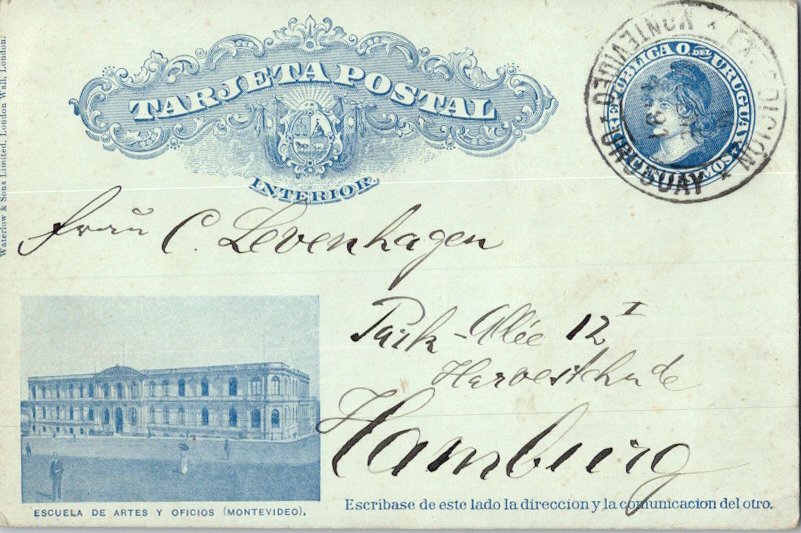 TARJETA POSTAL
INTERIOR.
REPÚBLICA O. DEL URUGUAY
MONTEVIDEO * EXPEDICIÓN * URUGUAY *
Waterlow & Sons Limited, London Wall, London.
Frau C. Levenhagen
Park-Allée 12 I
Harvestehude
Hamburg
ESCUELA DE ARTES Y OFICIOS (MONTEVIDEO).
Escribase de este lado la direccion y la comunicacion del otro.